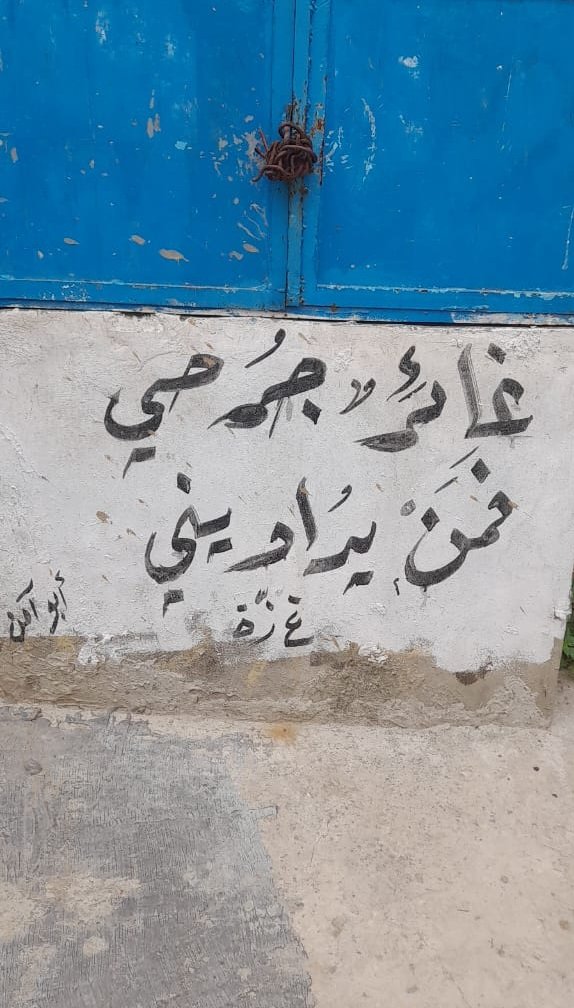 غائرٌ جُرحي
فمَنْ يُداويني
غزّة
أبو